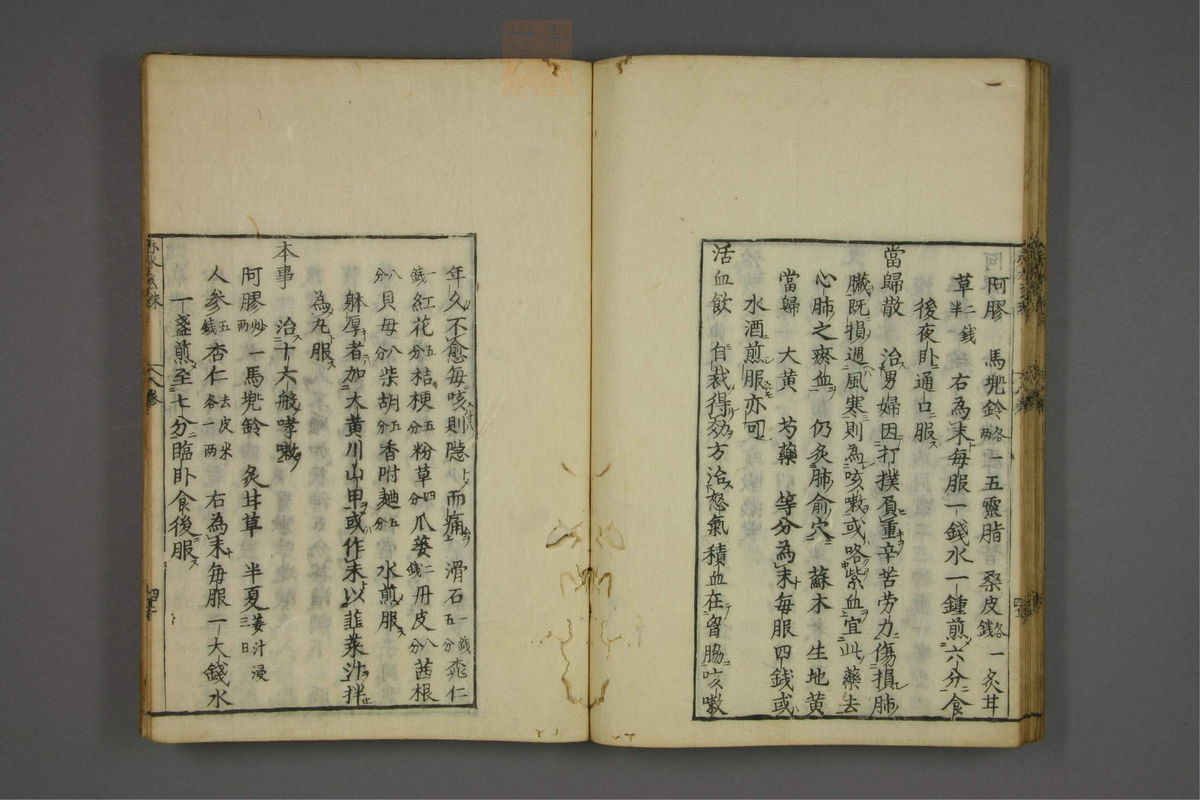 阿膠 馬兜鈴各一兩 五靈脂 桑皮各一錢 炙甘
草二錢半 右為末毎服一錢水一鍾煎六分食
後夜臥通口服
當歸散 治男婦因打撲負重辛苦劳力傷損肺
臓既損遇風寒則為咳嗽或咯紫血宜此藥去
心肺之瘀血 仍灸肺俞穴 蘇木 生地黄
當歸 大黄 芍藥 等分為末毎服四錢或
水酒煎服亦可
活血飲 自裁得効方治怒氣積血在胷脇咳嗽
年久不愈毎咳則隠ヽ而痛 滑石一錢五分 桃仁
一錢 紅花五分 桔梗五分 粉草四分 瓜蔞二錢 丹皮八分 茜根
八分 貝母八分 柴胡五分 香附五分 水煎服
躰厚者加大黄川山甲或作末以韮菜汁拌
為丸服
本事 治十六般哮嗽
阿膠炒一兩 馬兜鈴 炙甘草 半夏姜汁浸三日
人參五錢 杏仁去皮各一兩 右為末毎服一大錢水
一盞煎至七分臨臥食後服